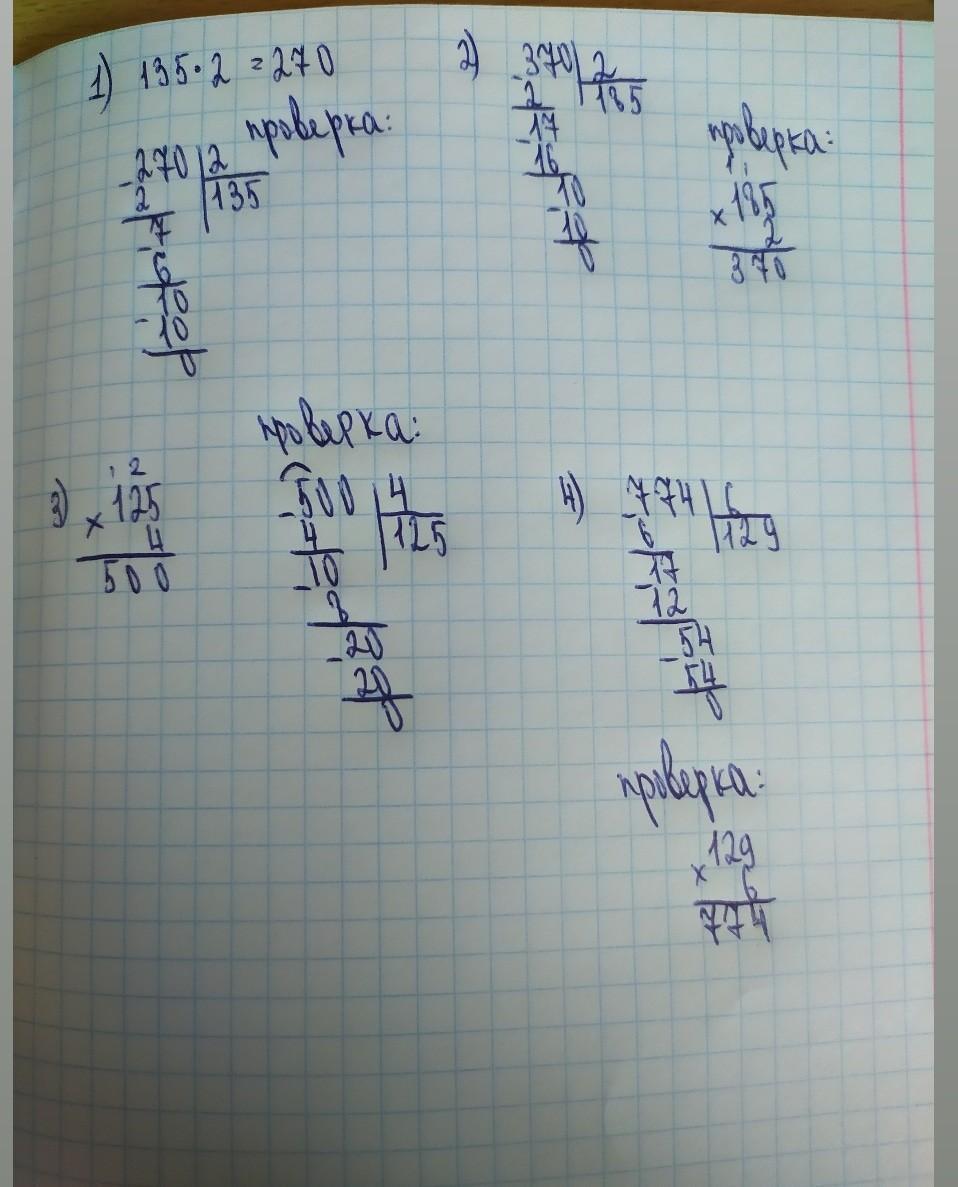 1) 135·2 = 270
проверка:
-270 | 2
2 | 135
-7
6
10
-10
0
2) -370 | 2
2 | 185
-17
16
-10
10
0
проверка:
1 1
× 185
2
370
3) 1 2
× 125
4
500
проверка:
-500 | 4
4 | 125
-10
8
-20
20
0
4) -774 | 6
6 | 129
-17
12
-54
54
0
проверка:
× 129
6
774